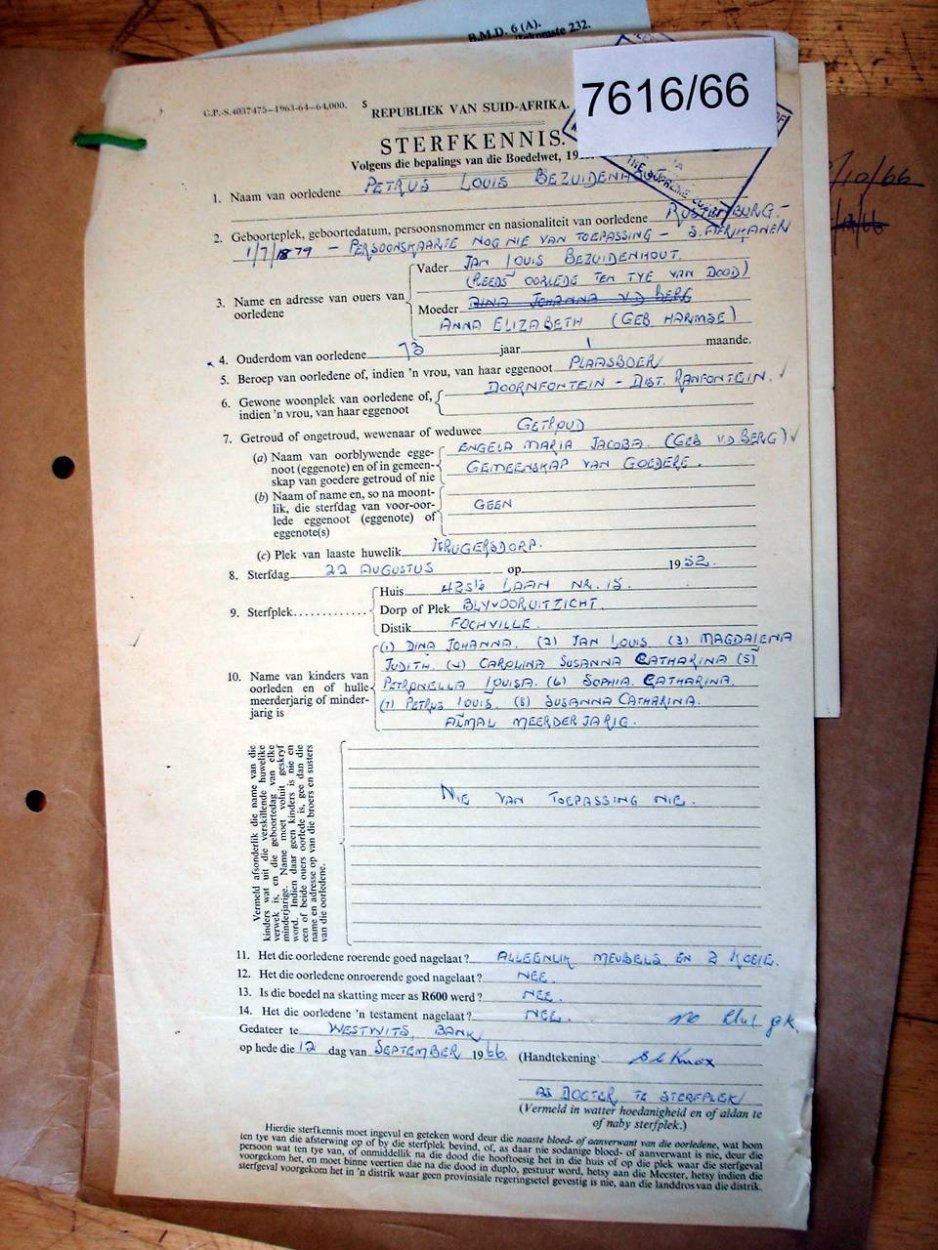 B.M.D. 6 (A).
232.
7616/66
G.P.-S.4037475—1963-64—64,000. S
REPUBLIEK VAN SUID-AFRIKA.
STERFKENNIS
Volgens die bepalings van die Boedelwet, 19
THE SUPREME COURT
/10/66
1. Naam van oorledene PETRUS LOUIS BEZUIDENHOUT
2. Geboorteplek, geboortedatum, persoonsnommer en nasionaliteit van oorledene RUSTENBURG.-
1/7/1879 - PERSOONSKAARTE NOG NIE VAN TOEPASSING - S. AFRIKANEN
3. Name en adresse van ouers van oorledene
Vader JAN LOUIS BEZUIDENHOUT.
(REEDS OORLEDE TEN TYE VAN DOOD)
Moeder DINA JOHANNA V.D BERG
ANNA ELIZABETH (GEB HARMSE)
4. Ouderdom van oorledene 73 jaar 1 maande.
5. Beroep van oorledene of, indien 'n vrou, van haar eggenoot PLAASBOER
6. Gewone woonplek van oorledene of, indien 'n vrou, van haar eggenoot
DOORNFONTEIN - DIST. RANFONTEIN.
7. Getroud of ongetroud, wewenaar of weduwee GETROUD
(a) Naam van oorblywende eggenoot (eggenote) en of in gemeenskap van goedere getroud of nie
ENGELA MARIA JACOBA. (GEB V.D BERG)
GEMEENSKAP VAN GOEDERE.
(b) Naam of name en, so na moontlik, die sterfdag van voor-oorlede eggenoot (eggenote) of eggenote(s)
GEEN
(c) Plek van laaste huwelik KRUGERSDORP.
8. Sterfdag 22 AUGUSTUS op 1952.
9. Sterfplek
Huis LAAN NR. 15.
Dorp of Plek BLYVOORUITZICHT.
Distik FOCHVILLE.
10. Name van kinders van oorleden en of hulle meerderjarig of minderjarig is
(1) DINA JOHANNA. (2) JAN LOUIS (3) MAGDALENA
JUDITH. (4) CAROLINA SUSANNA CATHARINA (5)
PETRONELLA LOUISA. (6) SOPHIA CATHARINA.
(7) PETRUS LOUIS. (8) SUSANNA CATHARINA.
ALMAL MEERDERJARIG.
Vermeld afsonderlik die name van die
kinders wat uit die verskillende huwelike
verwek is, en die geboortedag van elke
minderjarige. Name moet voluit geskryf
word. Indien daar geen kinders is nie en
een of beide ouers oorlede is, gee dan die
name en adresse op van die broers en susters
van die oorledene.
NIE VAN TOEPASSING NIE.
11. Het die oorledene roerende goed nagelaat? ALLEENLIK MEUBELS EN 2 KOEIE.
12. Het die oorledene onroerende goed nagelaat? NEE.
13. Is die boedel na skatting meer as R600 werd? NEE.
14. Het die oorledene 'n testament nagelaat? NEE.
Gedateer te WESTWITS, BANK
op hede die 12 dag van SEPTEMBER 1966. (Handtekening
AS DOGTER TE STERFPLEK
(Vermeld in watter hoedanigheid en of aldan te
of naby sterfplek.)
Hierdie sterfkennis moet ingevul en geteken word deur die naaste bloed- of aanverwant van die oorledene, wat hom
ten tye van die afsterwing op of by die sterfplek bevind, of, as daar nie sodanige bloed- of aanverwant is nie, deur die
persoon wat ten tye van, of onmiddellik na die dood die hooftoesig het in die huis of op die plek waar die sterfgeval
voorgekom het, en moet binne veertien dae na die dood in duplo, gestuur word, hetsy aan die Meester, hetsy indien die
sterfgeval voorgekom het in 'n distrik waar geen provinsiale regeringsetel gevestig is nie, aan die landdros van die distrik.